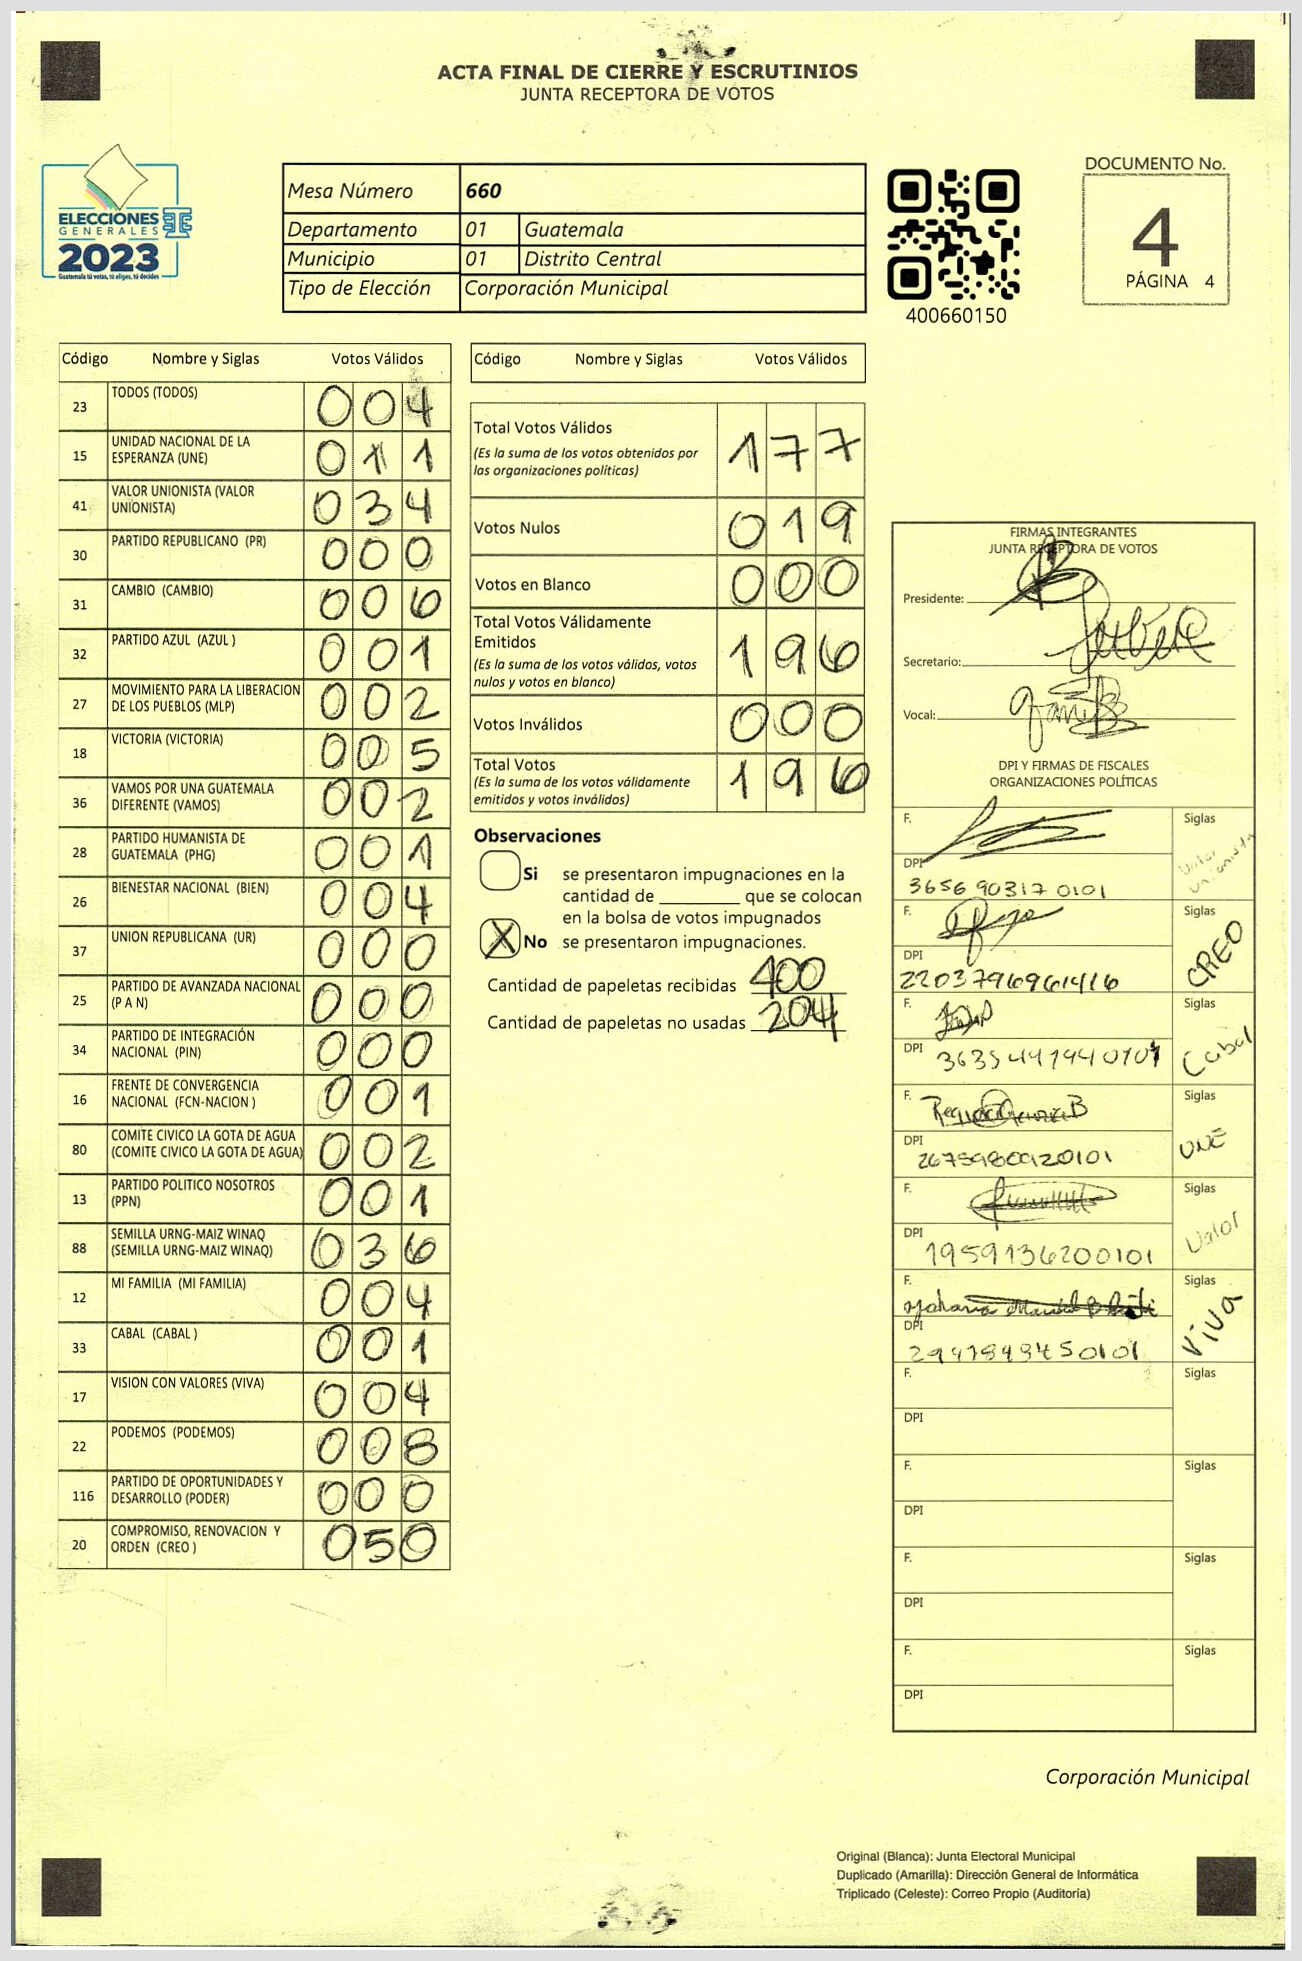 ACTA FINAL DE CIERRE Y ESCRUTINIOS
JUNTA RECEPTORA DE VOTOS
ELECCIONES
GENERALES
2023
Guatemala tú votas, tú eliges, tú decides
Mesa Número 660
Departamento 01 Guatemala
Municipio 01 Distrito Central
Tipo de Elección Corporación Municipal
400660150
DOCUMENTO No.
4
PÁGINA 4
Código Nombre y Siglas Votos Válidos
23 TODOS (TODOS) 004
15 UNIDAD NACIONAL DE LA
ESPERANZA (UNE) 011
41 VALOR UNIONISTA (VALOR
UNIONISTA) 034
30 PARTIDO REPUBLICANO (PR) 000
31 CAMBIO (CAMBIO) 006
32 PARTIDO AZUL (AZUL ) 001
27 MOVIMIENTO PARA LA LIBERACION
DE LOS PUEBLOS (MLP) 002
18 VICTORIA (VICTORIA) 005
36 VAMOS POR UNA GUATEMALA
DIFERENTE (VAMOS) 002
28 PARTIDO HUMANISTA DE
GUATEMALA (PHG) 001
26 BIENESTAR NACIONAL (BIEN) 004
37 UNION REPUBLICANA (UR) 000
25 PARTIDO DE AVANZADA NACIONAL
(P A N) 000
34 PARTIDO DE INTEGRACIÓN
NACIONAL (PIN) 000
16 FRENTE DE CONVERGENCIA
NACIONAL (FCN-NACION ) 001
80 COMITE CIVICO LA GOTA DE AGUA
(COMITE CIVICO LA GOTA DE AGUA) 002
13 PARTIDO POLITICO NOSOTROS
(PPN) 001
88 SEMILLA URNG-MAIZ WINAQ
(SEMILLA URNG-MAIZ WINAQ) 036
12 MI FAMILIA (MI FAMILIA) 004
33 CABAL (CABAL ) 001
17 VISION CON VALORES (VIVA) 004
22 PODEMOS (PODEMOS) 008
116 PARTIDO DE OPORTUNIDADES Y
DESARROLLO (PODER) 000
20 COMPROMISO, RENOVACION Y
ORDEN (CREO ) 050
Código Nombre y Siglas Votos Válidos
Total Votos Válidos
(Es la suma de los votos obtenidos por
las organizaciones políticas) 177
Votos Nulos 019
Votos en Blanco 000
Total Votos Válidamente
Emitidos
(Es la suma de los votos válidos, votos
nulos y votos en blanco) 196
Votos Inválidos 000
Total Votos
(Es la suma de los votos válidamente
emitidos y votos inválidos) 196
Observaciones
Si se presentaron impugnaciones en la
cantidad de ________ que se colocan
en la bolsa de votos impugnados
X No se presentaron impugnaciones.
Cantidad de papeletas recibidas 400
Cantidad de papeletas no usadas 204
FIRMAS INTEGRANTES
JUNTA RECEPTORA DE VOTOS
Presidente:
Secretario:
Vocal:
DPI Y FIRMAS DE FISCALES
ORGANIZACIONES POLÍTICAS
F. Siglas
Valor
Unionista
DPI
3656903170101
F. Siglas
CREO
DPI
2203796961416
F. Siglas
Cabal
DPI
F. Siglas
UNE
DPI
2675980920101
F. Siglas
Valor
DPI
1959136200101
F. Siglas
VIVA
DPI
F. Siglas
DPI
F. Siglas
DPI
F. Siglas
DPI
F. Siglas
DPI
Corporación Municipal
Original (Blanca): Junta Electoral Municipal
Duplicado (Amarilla): Dirección General de Informática
Triplicado (Celeste): Correo Propio (Auditoría)